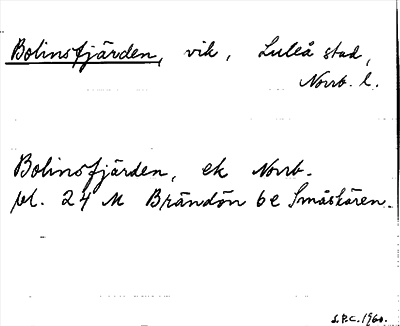 Bolinsfjärden, vik, Luleå stad,
Norrb. l.
Bolinsfjärden, ek Norrb.
bl. 24 M Brändön 6 e Småskären.
S.P.C. 1960.